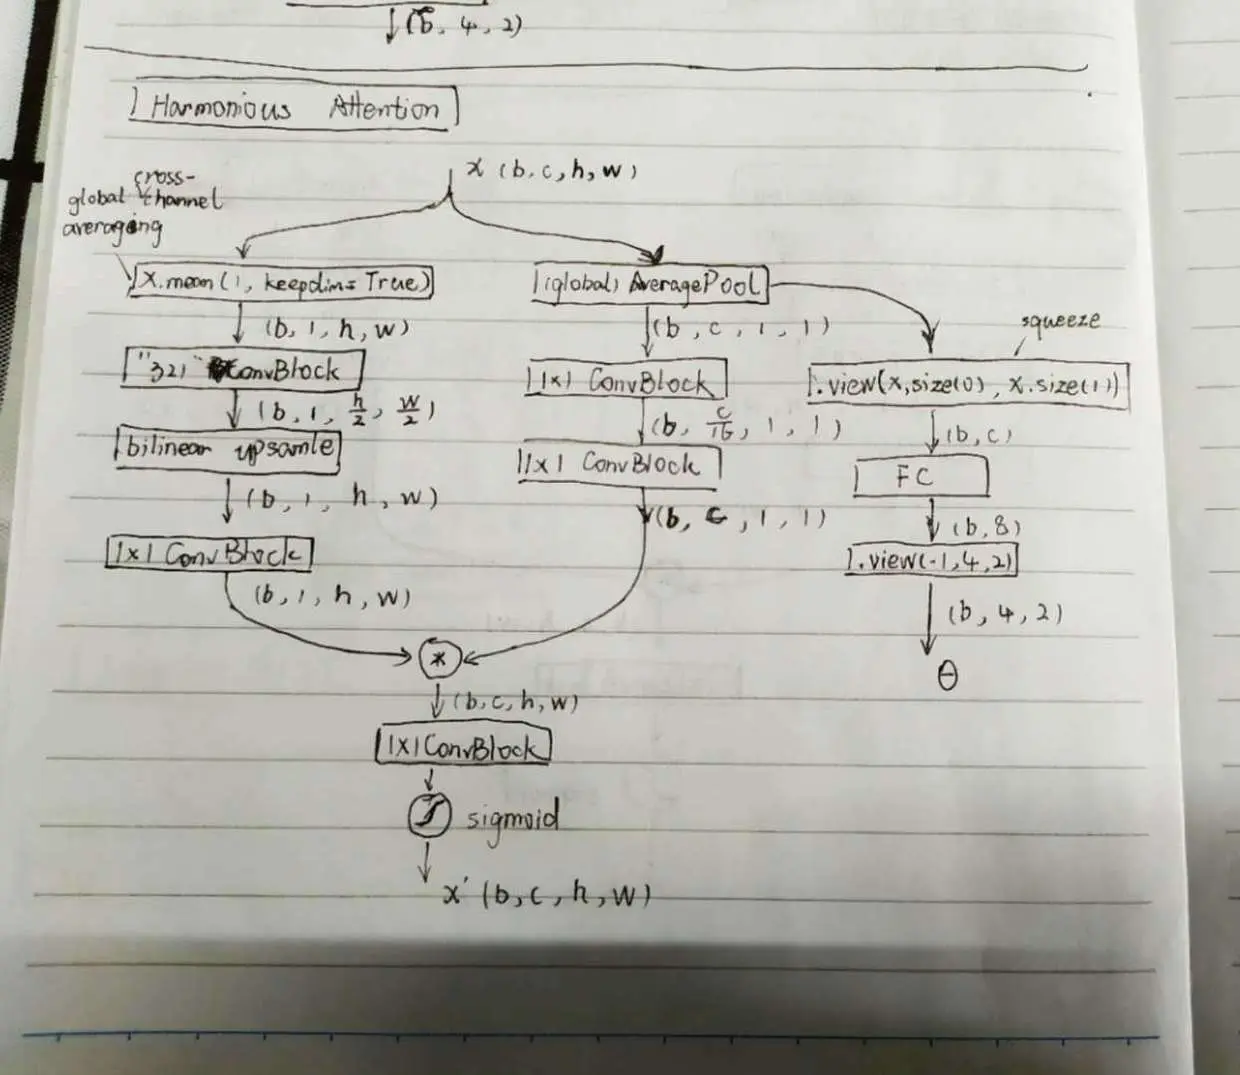 (b, 4, 2)
Harmonious Attention
x (b, c, h, w)
cross-
global channel
averaging
x.mean(1, keepdim=True)
(global) AveragePool
squeeze
(b, 1, h, w)
(b, c, 1, 1)
"321 ConvBlock
1x1 ConvBlock
.view(x,size(0), x.size(1))
(b, 1, h/2, w/2)
(b, c/16, 1, 1)
(b, c)
bilinear upsamle
1x1 ConvBlock
FC
(b, 1, h, w)
(b, c, 1, 1)
(b, 8)
1x1 ConvBlock
.view(-1, 4, 2)
(b, 1, h, w)
(b, 4, 2)
*
θ
(b, c, h, w)
1x1 ConvBlock
sigmoid
x' (b, c, h, w)